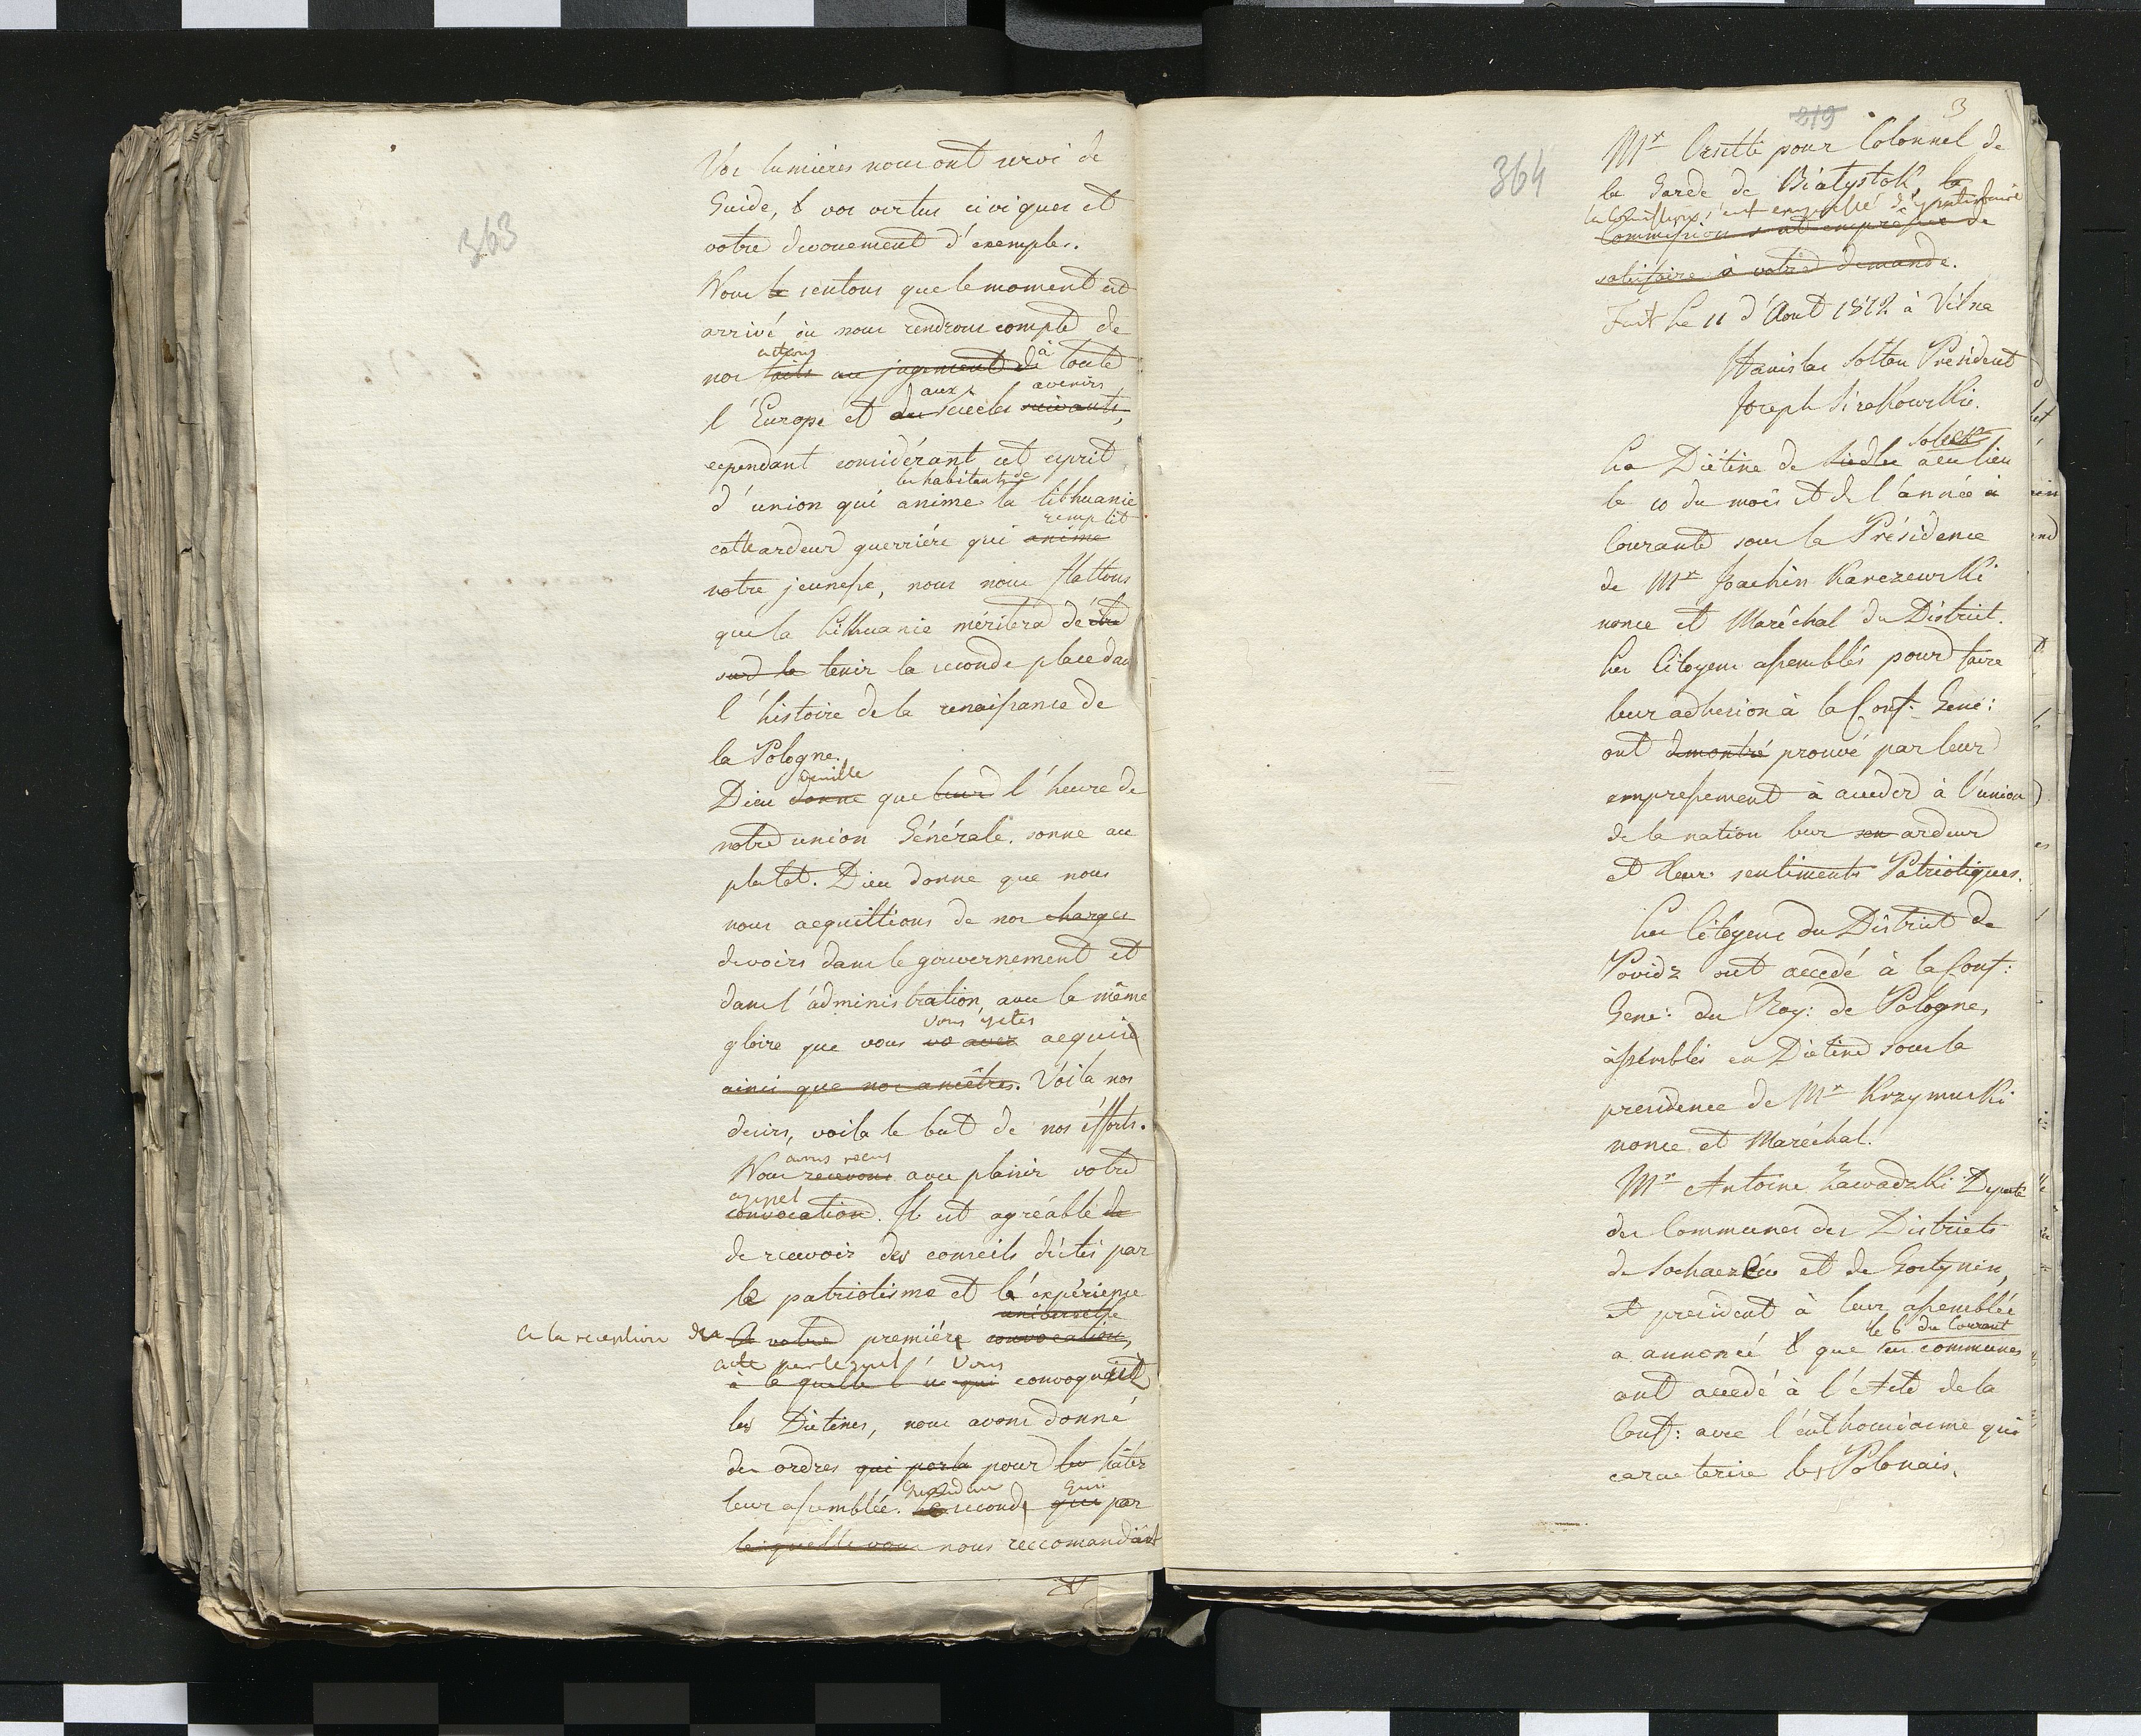 363
Vos lumières nous ont servi de
Guide, & vos vertus civiques et
votre devouement d'exemples.
Nous le sentons que le moment est
arrivé où nous rendrons compte de
actions à
nos faits au jugement de toute
aux avenirs
l'Europe et du siècles suivants,
cependant considérant cet esprit
les habitants de
d'union qui anime la lithuanie
remplit
cette ardeur guerrière qui anime
votre jeunesse, nous nous flattons
que la Lithuanie méritera de être
sur le tenir la seconde place dan
l'histoire de la renaissance de
la Pologne.
veuille
Dieu donne que leur l'heure de
notre union Générale sonne au
plutot. Dieu donne que nous
nous acquittions de nos charges
devoirs dans le gouvernement et
dans l'administration, avec la même
vous y etes
gloire que vous vo avez acquise
ainsi que nos ancêtres. Voila nos
desirs, voila le but de nos éfforts.
avons recus
Nous recevons avec plaisir votre
appel
convocation. Il est agréable de
de recevoir des conseils dictés par
le patriotisme et l'expérience
universelle
A la réception de la A votre première convocation,
acte par lequel Vous
à la quelle qui convoquait
les Dietines, nous avons donné
des ordres qui porta pour les hâter
leur assemblée. seconde qui par
le quelle vous nous reccomandant
219
3
364
Mr Orsetti pour Colonnel de
la Garde de Białystok, la
la Commission s'est empressé d'y satisfaire
Commission s'est empressée de
satisfaire à votre demande.
Fait Le 11 d'Aout 1812 à Vilna
Stanislas Soltan Président
Joseph Sirakowski.
Solecz
La Diétine de Siedlce a eu lieu
le 10 du mois et de l'année à
Courante sous la Présidence
de Mr Joachin Karczewski
nonce et Maréchal du District.
Les Citoyens assemblés pour faire
leur adhesion à la Conf: Gene:
ont demontré prouvé par leur
empressement à acceder à l'union
de la nation leur son ardeur
et leurs sentiments Patriotiques.
Les Citoyens du District de
Povidz ont accedé à la Conf:
Gene: du Roy: de Pologne,
assemblés en Diétine sous la
presidence de Mr Krzymuski
nonce et Maréchal.
Mr Antoine Zawadzki Deputé
des Communes des Districts
de Sochaczew et de Gostynin,
et president à leur assemblée
le 6 du Courant
a annoncé & que les communes
ont accedé à l'Acte de la
Conf: avec l'enthousiasme qui
caracterise les Polonais.